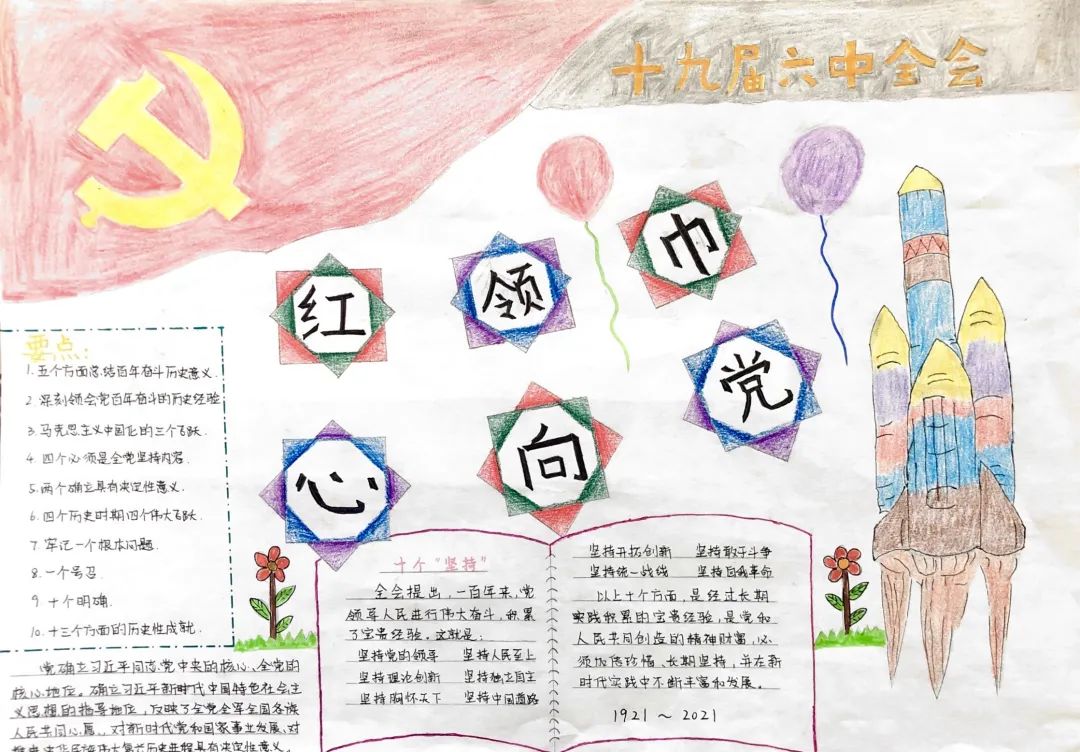 十九届六中全会
红领巾
心向党
要点:
1. 五个方面总结百年奋斗历史意义.
2. 深刻领会党百年奋斗的历史经验
3. 马克思主义中国化的三个飞跃.
4. 四个必须是全党坚持内容.
5. 两个确立具有决定性意义.
6. 四个历史时期四个伟大飞跃.
7. 牢记一个根本问题.
8. 一个号召.
9. 十个明确.
10. 十三个方面的历史性成就.
党确立习近平同志党中央的核心、全党的
核心地位。确立习近平新时代中国特色社会主
义思想的指导地位,反映了全党全军全国各族
人民共同心愿。对新时代党和国家事业发展、对
推进中华民族伟大复兴历史进程具有决定性意义。
十个“坚持”
全会提出,一百年来,党
领导人民进行伟大奋斗,积累
了宝贵经验。这就是:
坚持党的领导 坚持人民至上
坚持理论创新 坚持独立自主
坚持胸怀天下 坚持中国道路
坚持开拓创新 坚持敢于斗争
坚持统一战线 坚持自我革命
以上十个方面,是经过长期
实践积累的宝贵经验,是党和
人民共同创造的精神财富,必
须加倍珍惜、长期坚持,并在新
时代实践中不断丰富和发展。
1921 ~ 2021